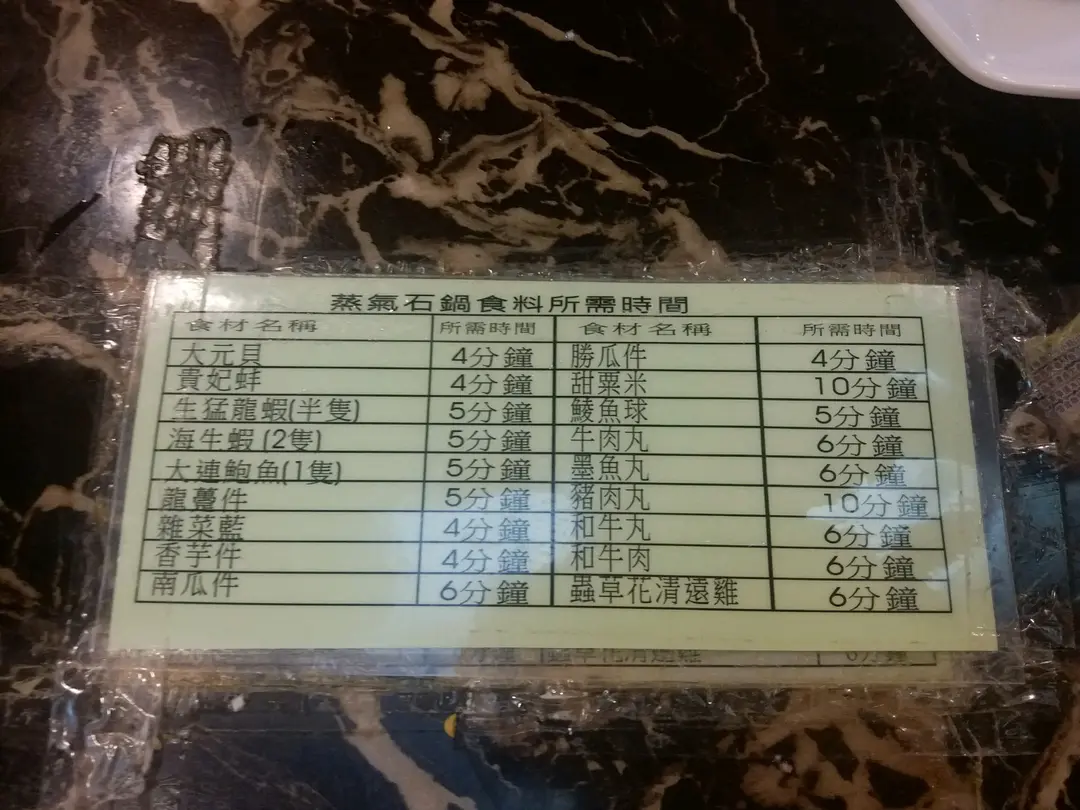 蒸氣石鍋食料所需時間
食材名稱 所需時間 食材名稱 所需時間
大元貝 4分鐘 勝瓜件 4分鐘
貴妃蚌 4分鐘 甜粟米 10分鐘
生猛龍蝦(半隻) 5分鐘 鯪魚球 5分鐘
海生蝦(2隻) 5分鐘 牛肉丸 6分鐘
大連鮑魚(1隻) 5分鐘 墨魚丸 6分鐘
龍躉件 5分鐘 豬肉丸 10分鐘
雜菜藍 4分鐘 和牛丸 6分鐘
香芋件 4分鐘 和牛肉 6分鐘
南瓜件 6分鐘 蟲草花清遠雞 6分鐘
分鐘 蟲草花清遠雞 6分鐘